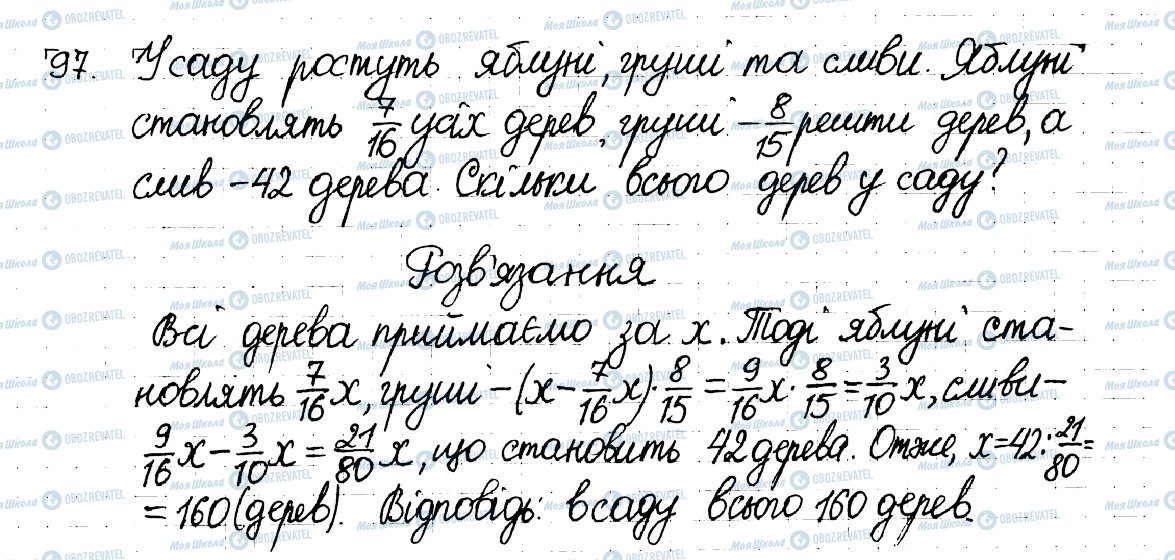 97. У саду ростуть яблуні, груші та сливи. Яблуні
становлять 7/16 усіх дерев, груші – 8/15 решти дерев, а
слив – 42 дерева. Скільки всього дерев у саду?
Розв'язання
Всі дерева приймаємо за x. Тоді яблуні ста-
новлять 7/16 x, груші – (x – 7/16 x) · 8/15 = 9/16 x · 8/15 = 3/10 x, сливи –
9/16 x – 3/10 x = 21/80 x, що становить 42 дерева. Отже, x = 42 : 21/80 =
= 160 (дерев). Відповідь: в саду всього 160 дерев.
Моя Школа OBOZREVATEL